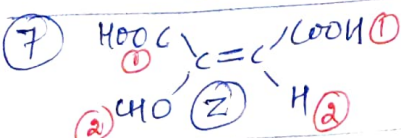 7 HOOC COOH 1
1 C=C
2 CHO Z H 2